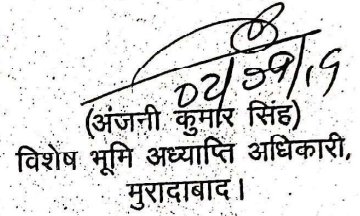 (अंजनी कुमार सिंह)
विशेष भूमि अध्याप्ति अधिकारी,
मुरादाबाद।